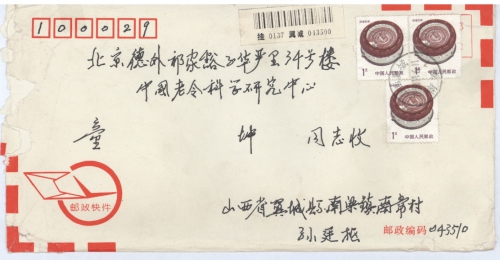 100029
挂 0137 翼城 043500
北京德外祁家豁子华严里34号楼
中国老龄科学研究中心
童 坤 同志收
1元
中国人民邮政
1元
中国人民邮政
1元
中国人民邮政
邮政快件
山西省翼城县南梁镇南常村
孙廷
邮政编码 043510